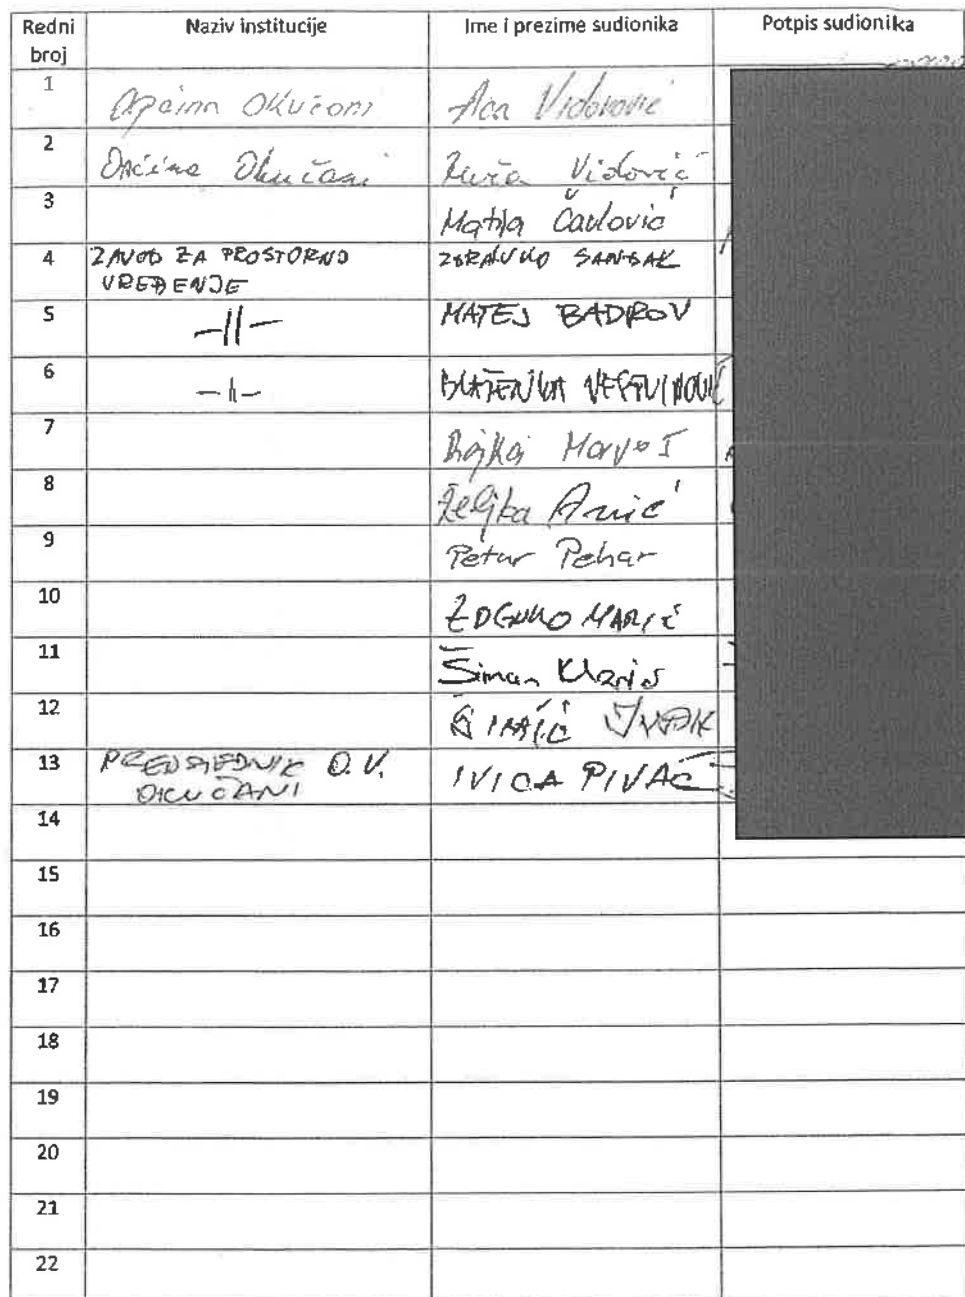 Redni broj Naziv institucije Ime i prezime sudionika Potpis sudionika
1 Općina Okučani Aca Vidović
2 Općina Okučani Ruža Vidović
3 Matija Čavlović
4 ZAVOD ZA PROSTORNO UREĐENJE ZDRAVKO SANDAK
5 -||- MATEJ BADROV
6 -||- BLAŽENKA
7 Rajka
8 Željka Anić
9 Petar Pehar
10 ZDENKO MARIĆ
11 Šiman
12 ŠIMIĆ
13 PREDSJEDNIK O.V. OKUČANI IVICA PIVAC
14
15
16
17
18
19
20
21
22